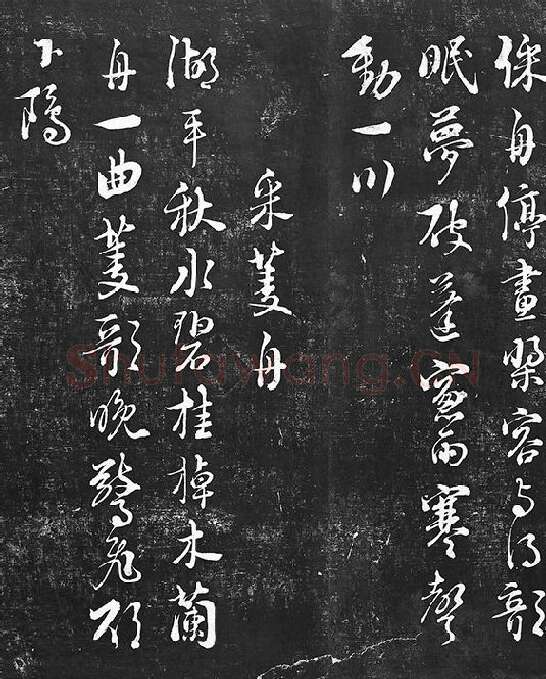 採舟停畫槳容与得欹
眠夢破蓬窗雨寒聲
動一川
采菱舟
湖平秋水碧桂棹木蘭
舟一曲菱歌晚驚飛欲
下鷗
Shufawang.cn